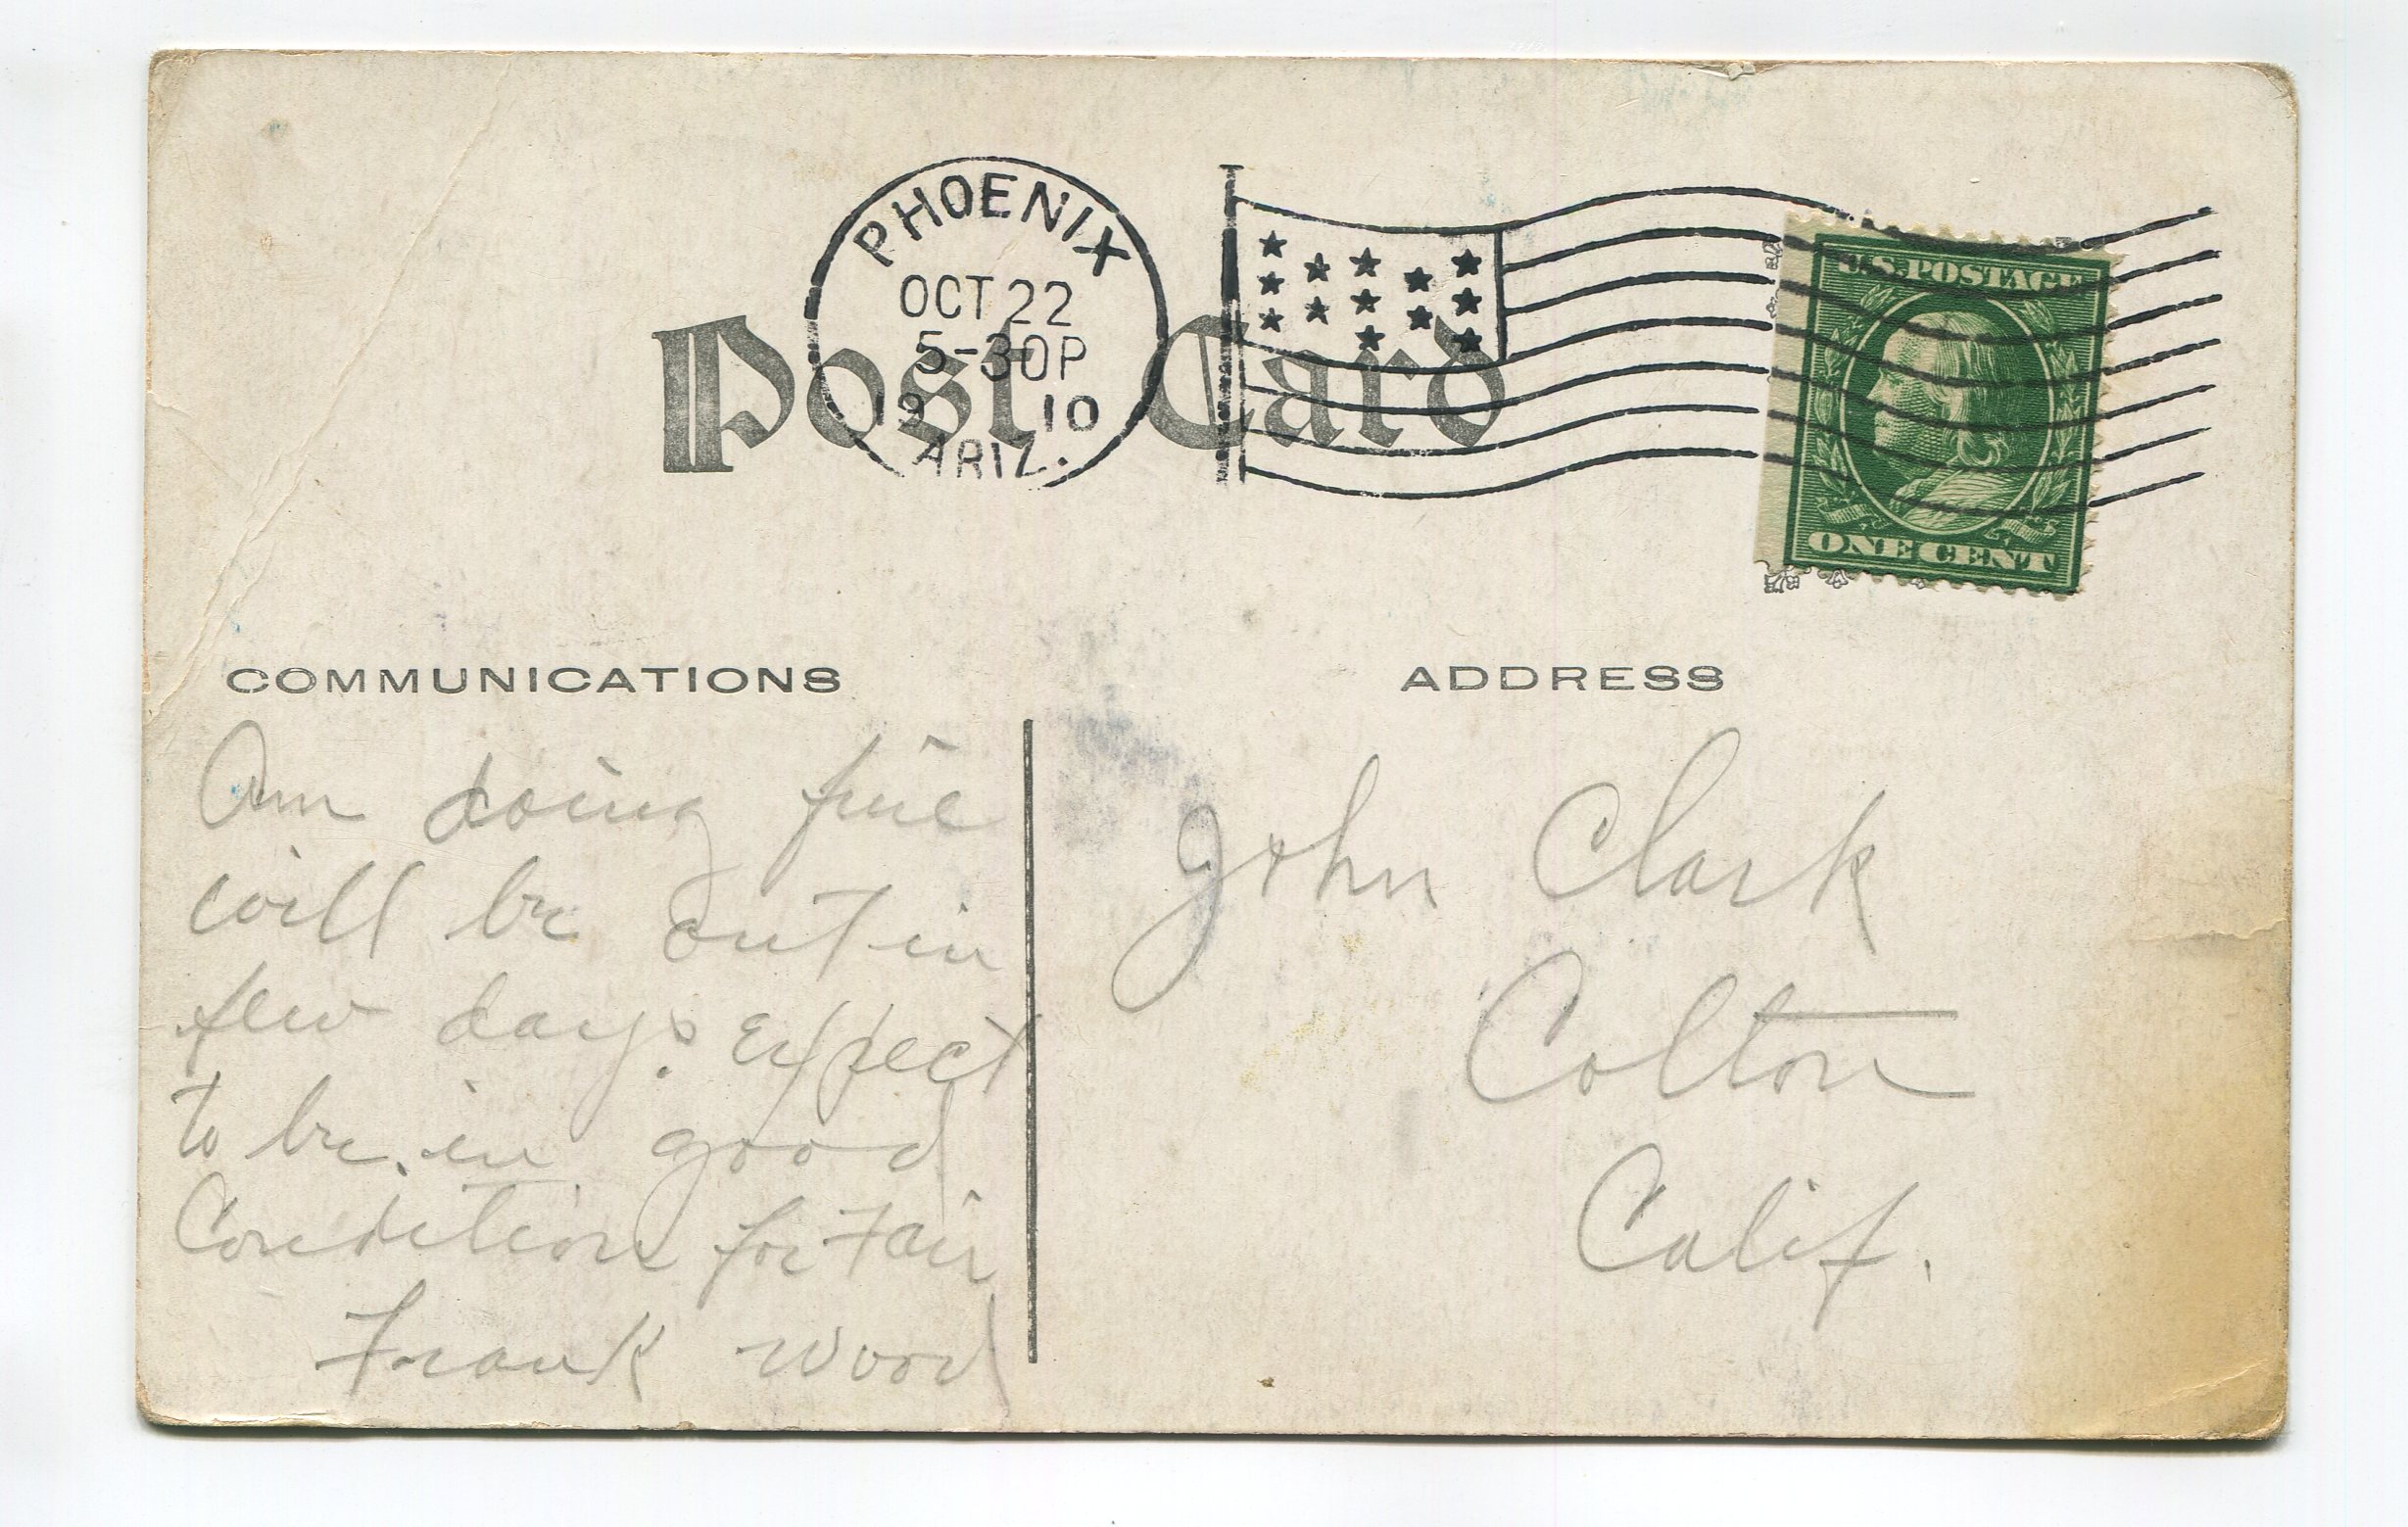 PHOENIX
OCT 22
5-30P
19 10
ARIZ.
Post Card
U.S. POSTAGE
ONE CENT
COMMUNICATIONS
Am doing fine
will be out in
few days. Expect
to be in good
Condition for Fair
Frank Wood
ADDRESS
John Clark
Colton
Calif.